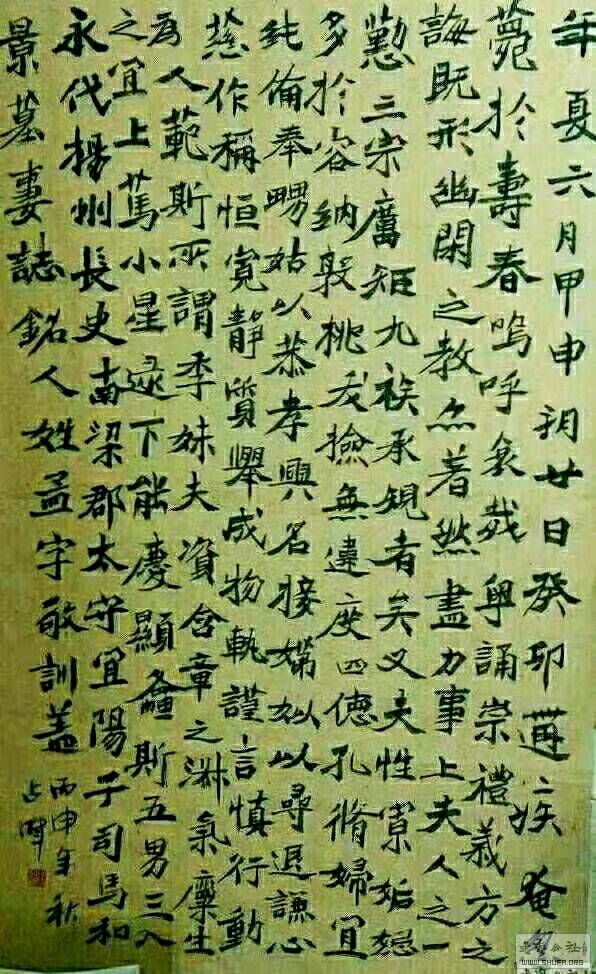 年夏六月甲申朔廿日癸卯遘疾奄
薨於壽春嗚呼哀哉誦崇禮義方之
誨既形幽閑之教亦著然盡力事上夫人之
懃三宗厲矩九族承規者矣又夫性寡妬
多於容納敦桃夭檢無違度四德孔脩婦宜
純備奉舅姑以恭孝興名接娣姒以尋退謙心
慈作稱恒寬靜質舉成物軌謹言慎行動
為人範斯所謂季妹夫資含章之淋氣稟生
之宜上篤小星逮下能慶顯螽斯五男三入
永代揚州長史南梁郡太守宜陽子司馬和
景墓妻誌銘人姓孟字敬訓蓋
丙申年秋